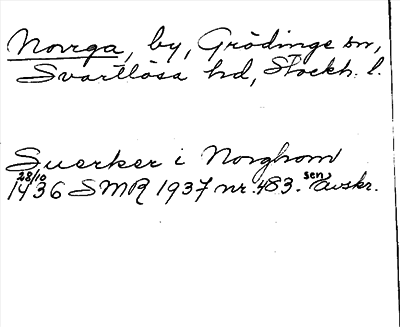 Norrga, by, Grödinge sn,
Svartlösa hd, Stockh. l.
Suerker i Norghom
28/10
1436 SMR 1937 nr. 483. sen avskr.